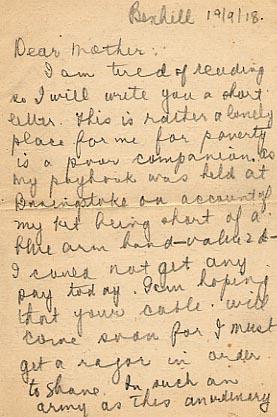 Bexhill 19/9/18.
Dear Mother:
I am tired of reading
so I will write you a short
letter. This is rather a lonely
place for me for poverty
is a poor companion, as
my paybook was held at
Basingstoke on account of
my kit being short of a
blue arm band - value 2d -
I could not get any
pay today. I am hoping
that your cable will
come soon for I must
get a razor in order
to shave. In such an
army as this an ordinary